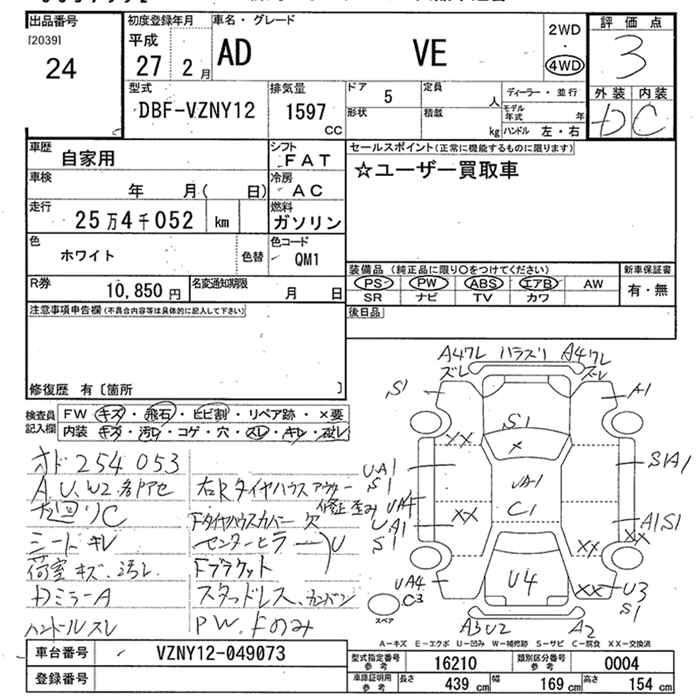 出品番号
[2039]
24
初度登録年月
平成
27 2月
車名・グレード
AD VE
2WD
・
4WD
評価点
3
外装 内装
D C
型式
DBF-VZNY12
排気量
1597 CC
ドア
5
定員
人
形状
積載
kg
ディーラー・並行
モデル年式 年
ハンドル 左・右
車歴
自家用
シフト
FAT
セールスポイント(正常に機能するものに限ります)
☆ユーザー買取車
車検
年 月( 日)
冷房
AC
走行
25万4千052 km
燃料
ガソリン
色
ホワイト
色替
色コード
QM1
装備品 (純正品に限り○をつけてください)
PS PW ABS エアB AW
SR ナビ TV カワ
新車保証書
有・無
R券
10,850円
名変通知期限
月 日
後日品
注意事項申告欄(不具合内容等は具体的に記入して下さい)
修復歴 有〔箇所 〕
検査員記入欄
FW キズ・飛石・ヒビ割・リペア跡・×要
内装 キズ・汚れ・コゲ・穴・スレ・キレ・
オド254053
A,U,W2
廻りC
シートキレ
荷室キズ、汚レ
DミラーA
ハンドルスレ
右Rタイヤハウスアウター
修正歪み
Fタイヤハウスカバー欠
センターピラー U
Fブラケット
スタッドレス、
PW、Fのみ
A4ワレ
ズレ
ハラズリ
A4ワレ
ズレ
S1
A1
S1
XX
X
UA1
S1
UA1
S1A1
UA4
C1
UA1
S1
XX
A1S1
XX
XX
UA4
C3
U4
XX
U3
S1
スペア
A3U2
A2
A-キズ E-エクボ U-凹み W-補修跡 S-サビ C-腐食 XX-交換済
車台番号
VZNY12-049073
登録番号
型式指定番号
参考
16210
類別区分番号
参考
0004
車庫証明用
参考
長さ 439cm 幅 169cm 高さ 154cm